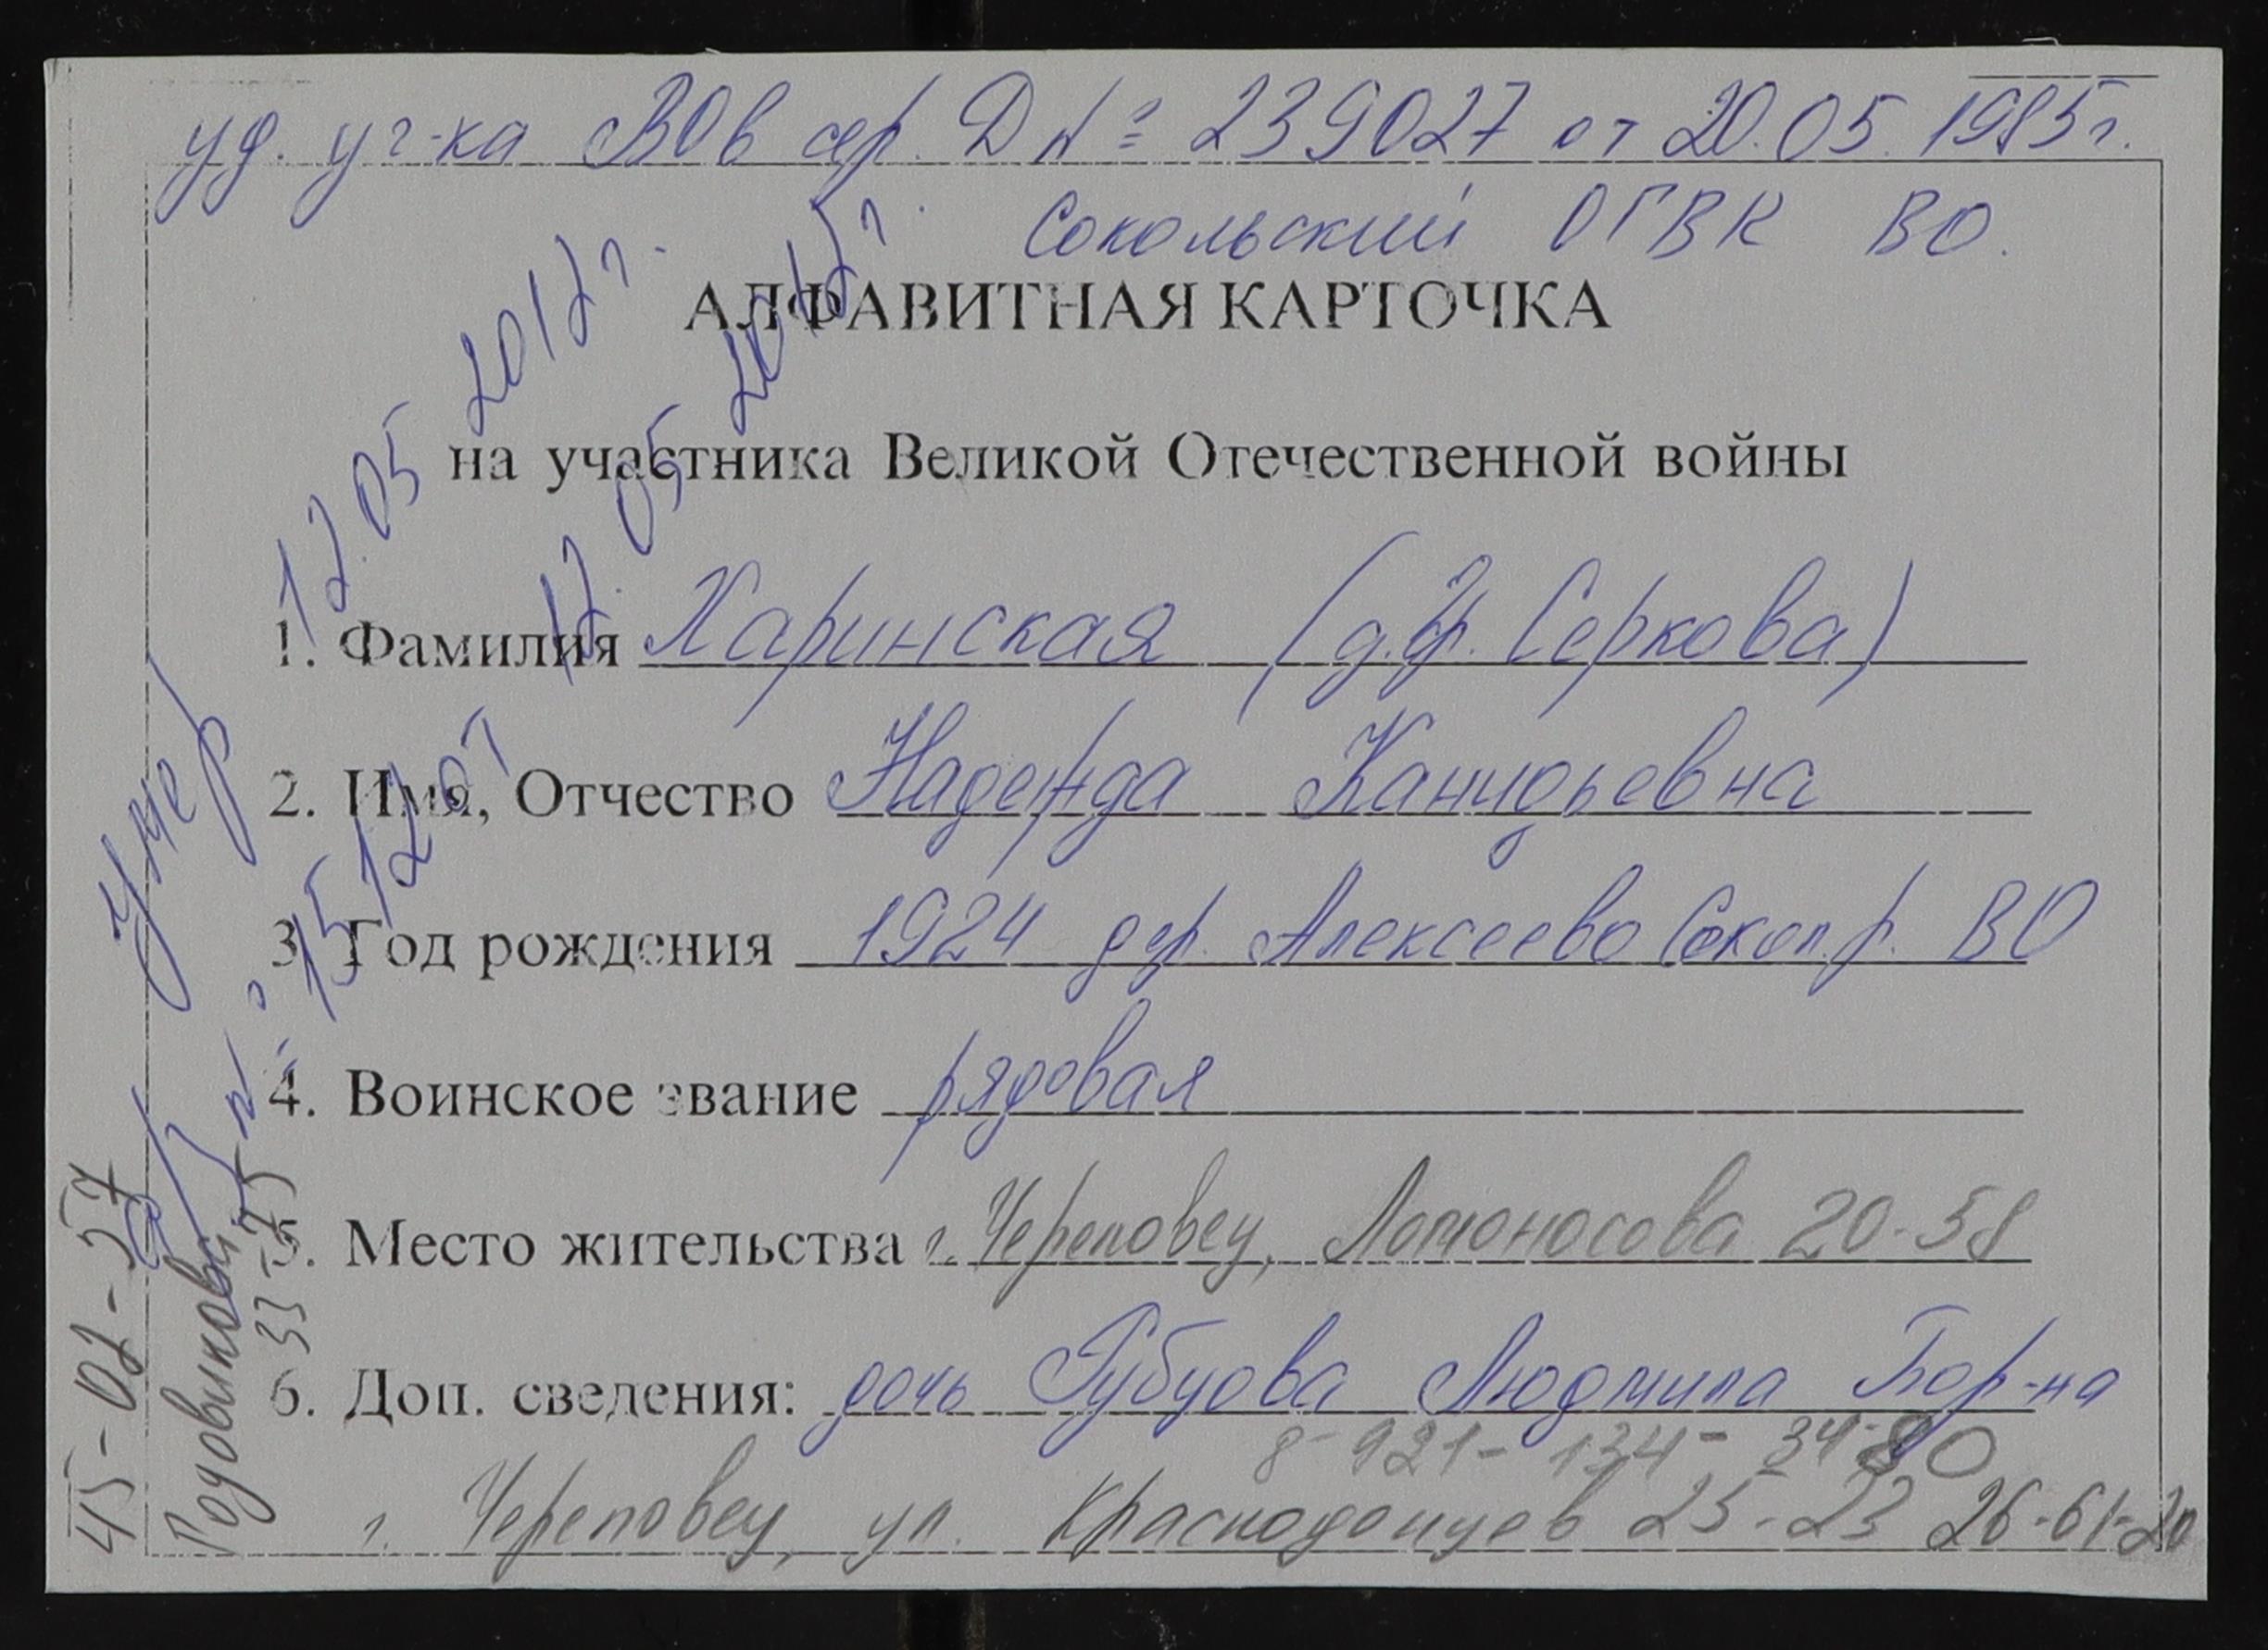 уд. уч-ка ВОв сер. Д № 239027 от 20.05.1985г.
Сокольский ОГВК ВО.
АЛФАВИТНАЯ КАРТОЧКА
на участника Великой Отечественной войны
1. Фамилия Харинская (д.ф. Серкова)
2. Имя, Отчество Надежда Канидьевна
3. Год рождения 1924 дер. Алексеево Сокол.р. ВО
4. Воинское звание рядовая
5. Место жительства г. Череповец, Ломоносова 20-58
6. Доп. сведения: дочь Рубцова Людмила Бор-на
8-921-134-34-80
г. Череповец, ул. Краснодонцев 25-23 26-61-20
умер 12.05 2012г.
№ 1512 от 12.05 2012г.
45-02-57
33-75